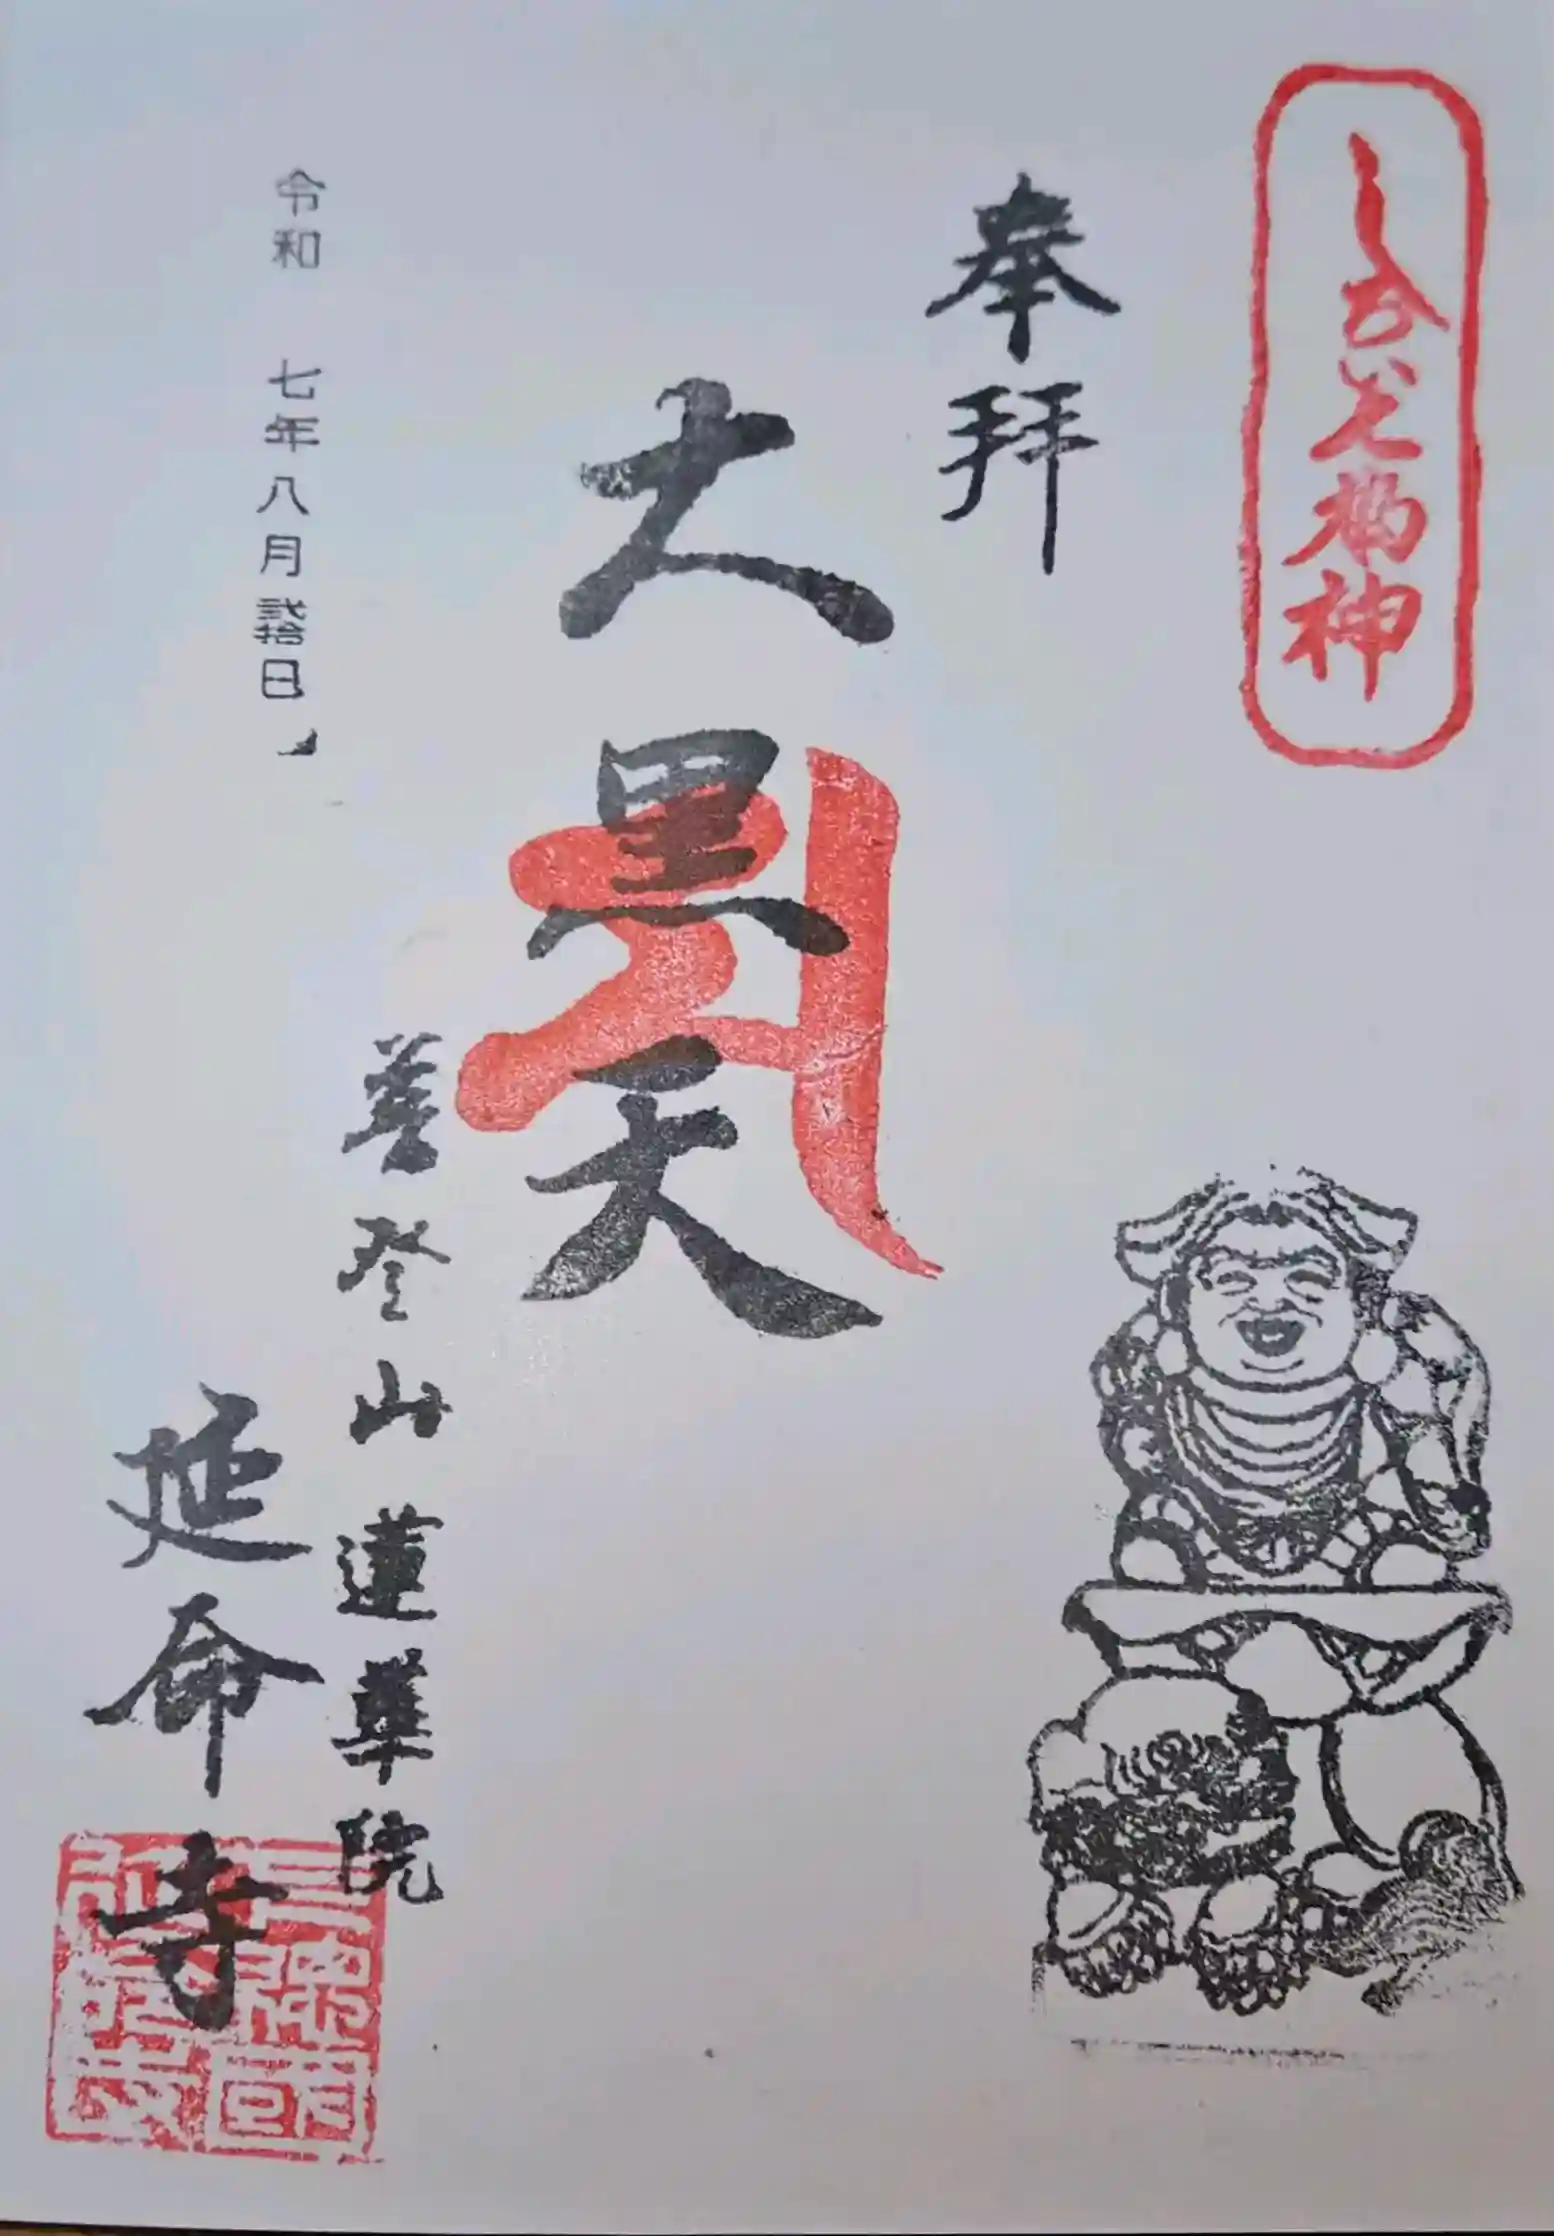 しろい七福神
奉拝
大黒天
善登山蓮華院
延命寺
令和 七年八月弐拾日